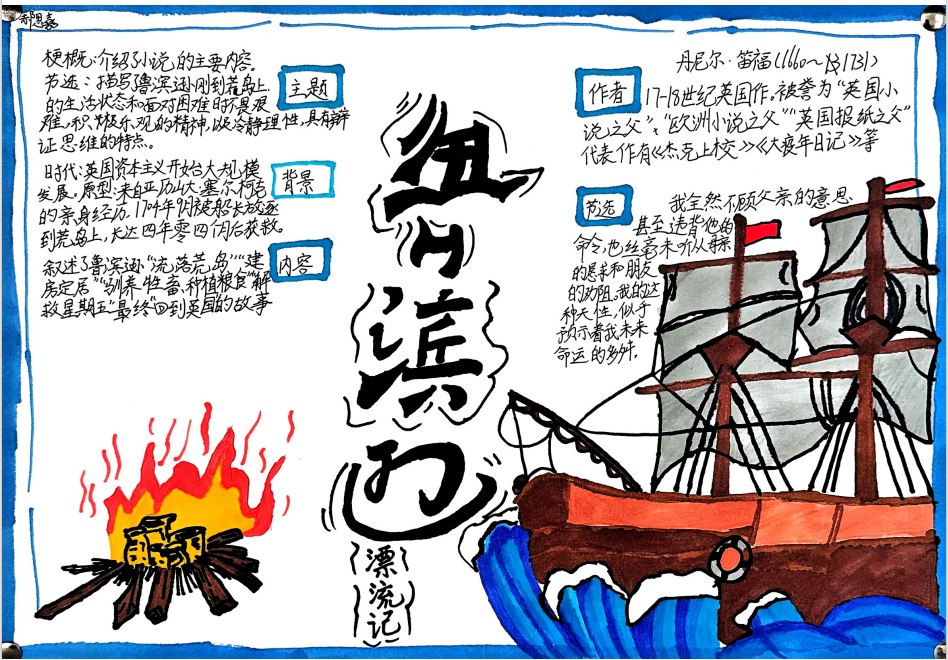 郝思嘉
梗概:介绍小说的主要内容。
节选:描写鲁滨逊刚到荒岛上
的生活状态和面对困难时不畏艰
难,积极乐观的精神,以及冷静理性,具有辩
证思维的特点。
主题
时代:英国资本主义开始大规模
发展。原型:来自亚历山大·塞尔柯克
的亲身经历,1704年9月被船长放逐
到荒岛上,长达四年零四个月后获救。
背景
叙述了鲁滨逊“流落荒岛”“建
房定居”“驯养牲畜,种植粮食”“解
救星期五”最终回到英国的故事
内容
鲁
滨
漂
流
记
丹尼尔·笛福(1660~1731)
作者
17-18世纪英国作,被誉为“英国小
说之父”、“欧洲小说之父”“英国报纸之父”
代表作有《杰克上校》《大疫年日记》等
节选
我全然不顾父亲的意思
甚至违背他的
命令,也丝毫未听从母亲
的恳求和朋友
的劝阻。我的这
种天性,似乎
预示着我未来
命运的多舛。